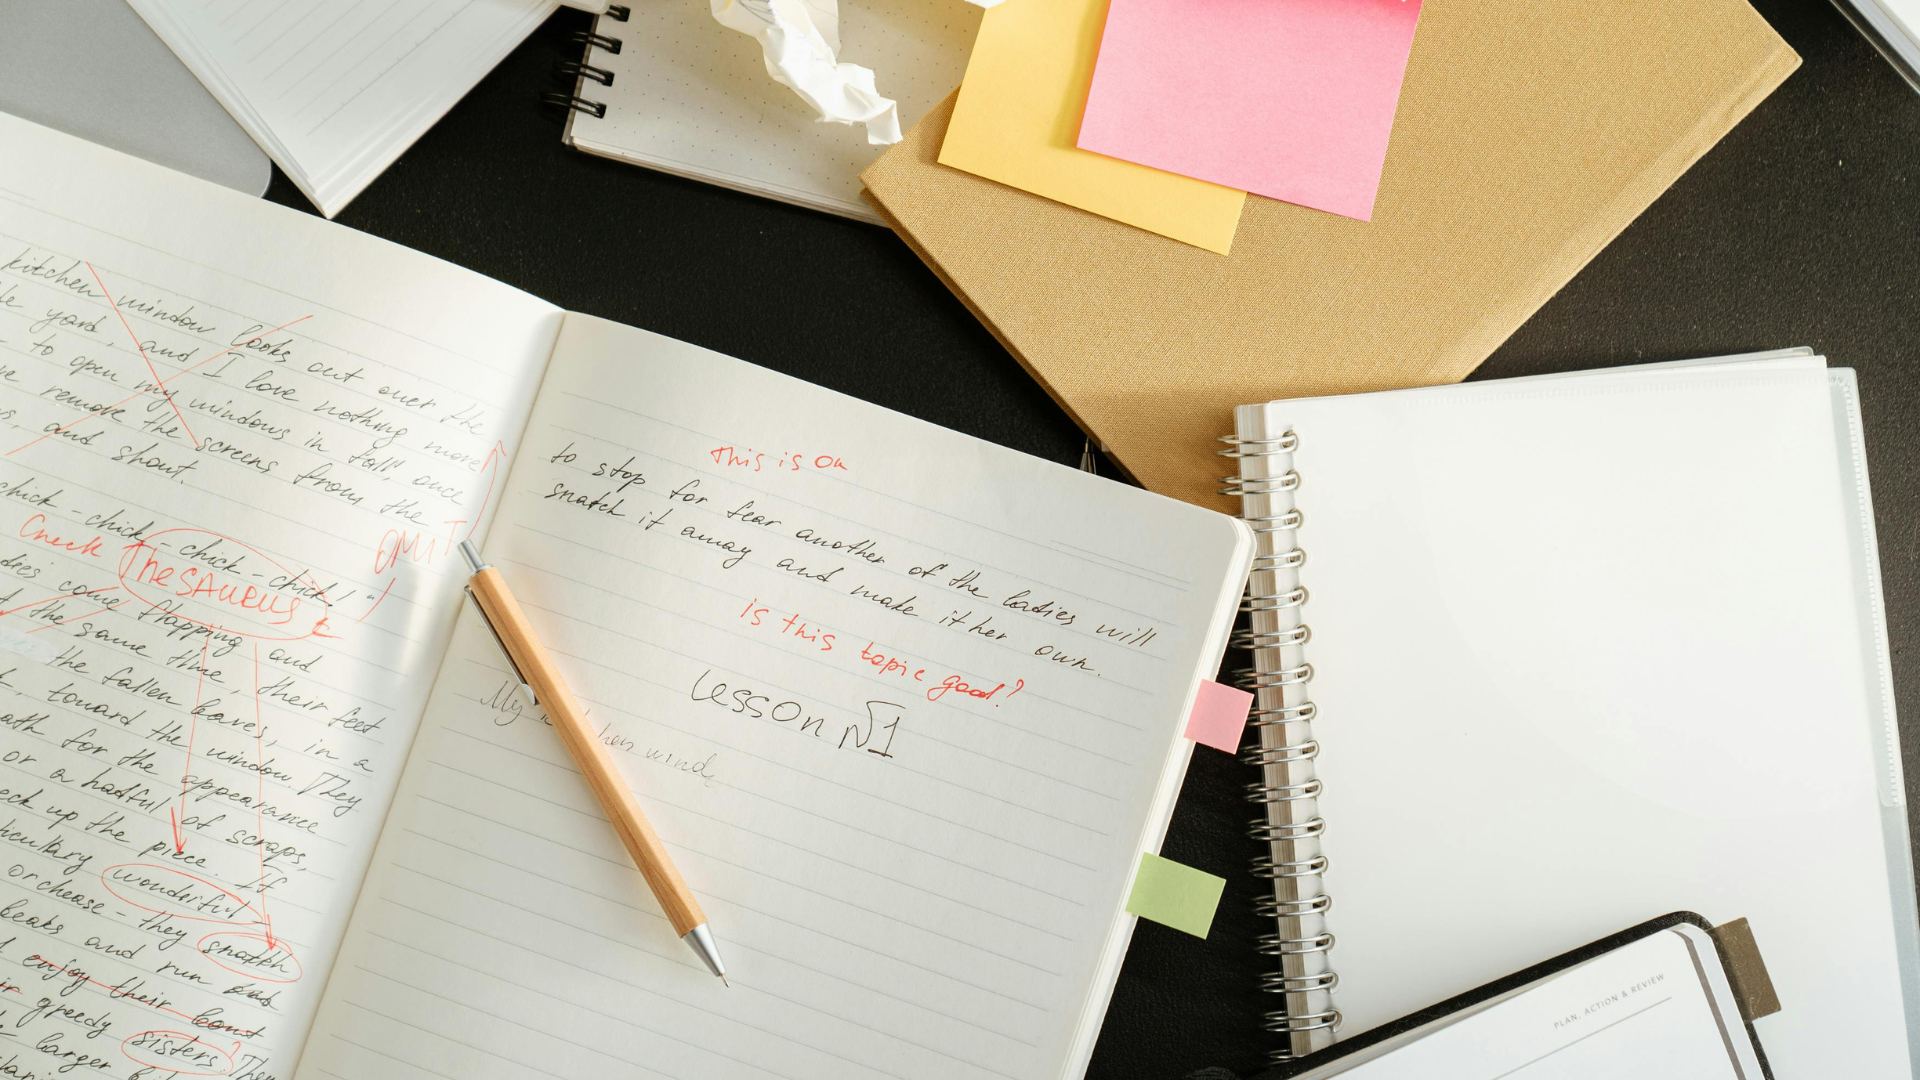 kitchen window looks out over the
yard, and I love nothing more
to open my windows in fall, once
remove the screens from the
and shout.
chick-chick-chick-chick-chick!"
OMIT
Check
TheSAURUS
come flapping and
the same time, their feet
the fallen leaves, in a
toward the window. They
for the appearance
or a hatful of scraps,
up the piece. If
wonderful
orchease - they snatch
beaks and run
enjoy their
greedy sisters? They
larger
This is OK
to stop for fear another of the ladies will
snatch it away and make it her own.
is this topic good?
Lesson №1
My
PLAN, ACTION & REVIEW